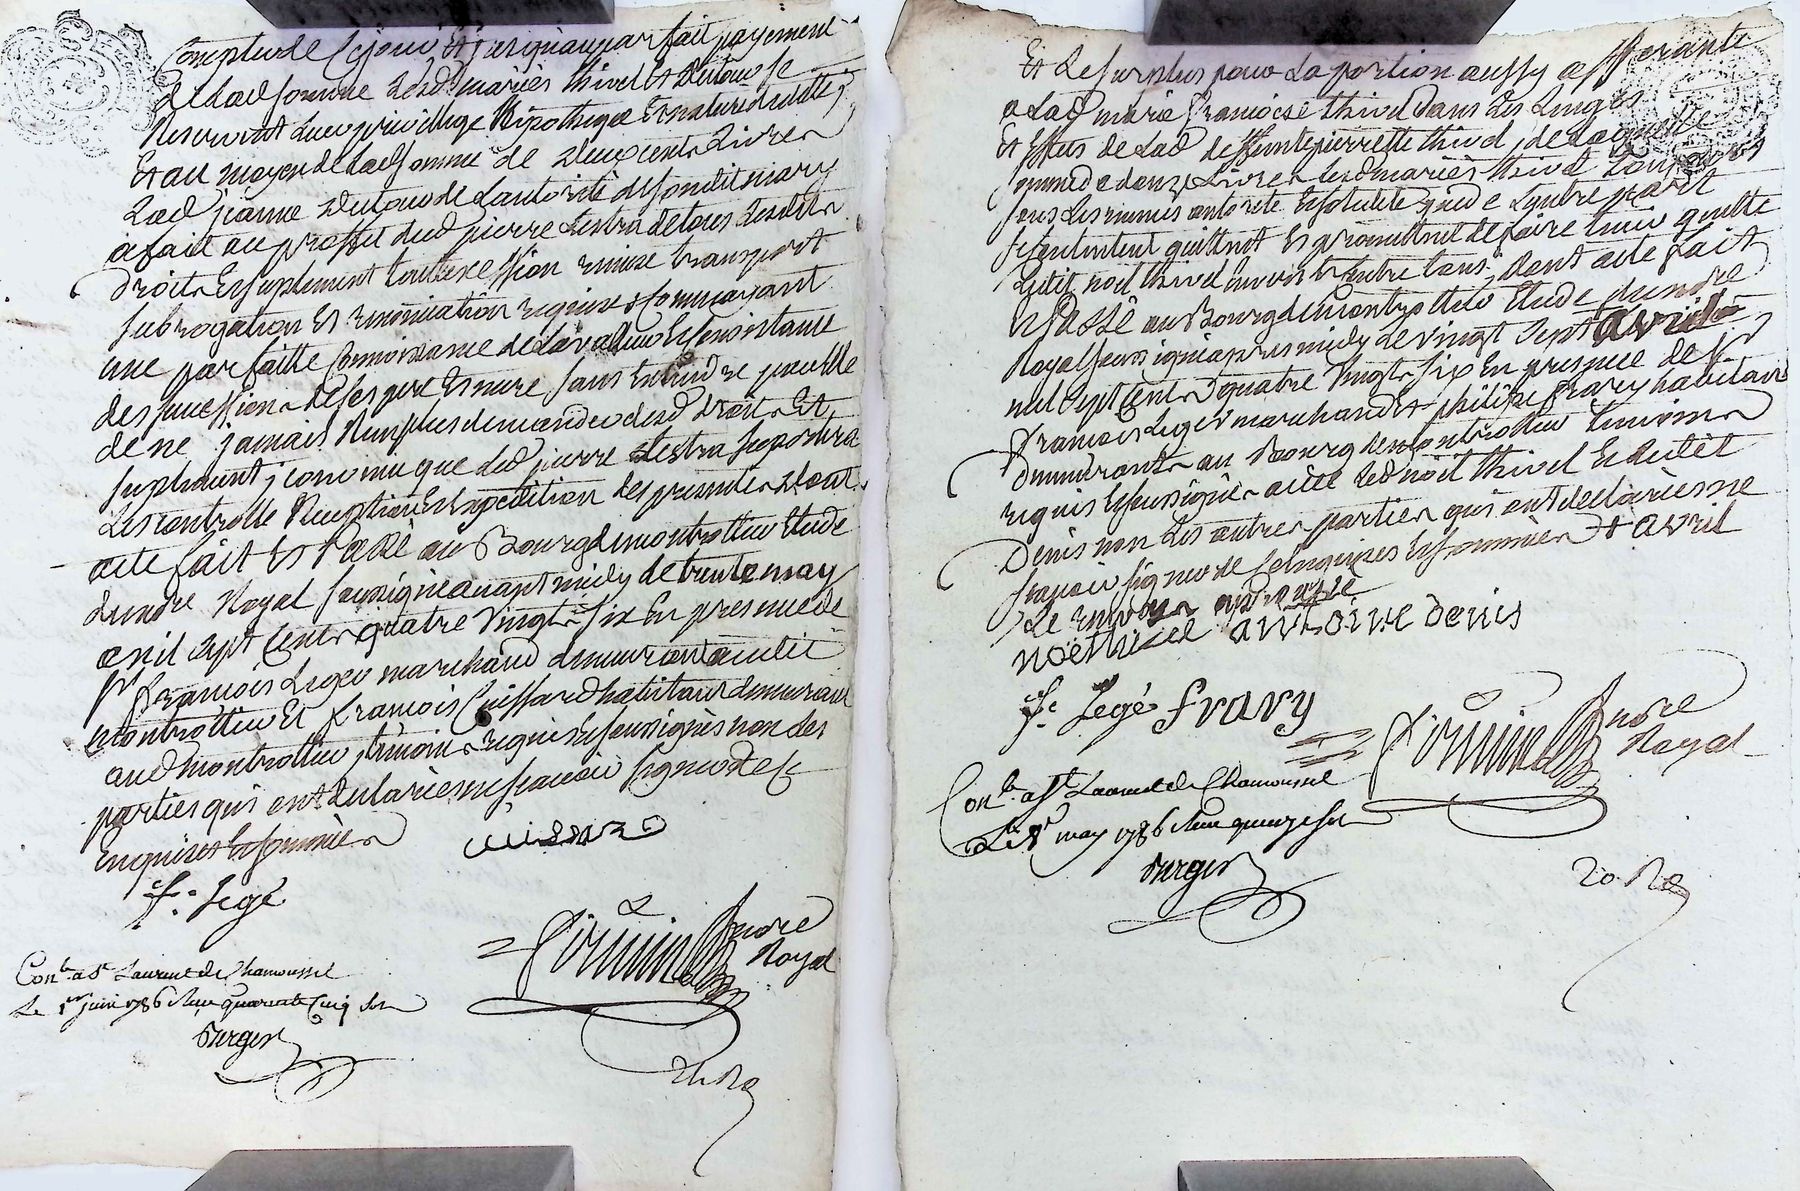 Compter de ce jour et jusqu'au parfait payement
de lad somme lesd mariés thivel et dutour se
Reservent leur privillege Hipothegue et nature de dette,
Et au moyen de lad somme de deux cents Livres
Lad jeanne dutour de Lautorité desondit mary
a fait au proffit dud pierre Lestra de tous lesdits
droits Et suplement toutte cession remise transport
subrogation Et renonciation requise Connoissant
une parfaitte Connoissance de la valleur Et Consistance
des succession de ses pere Et mere, sans Entendre
de ne jamais Rien plus demander desd droits Et
suplement, convenu que led pierre Lestra suportera
Les controlle Reception Et Expedition des presentes dont
acte fait Et PASSÉ au Bourg de montrottier Etude
du ndre Royal soussigné avant midy le trente may
mil sept Cents quatre vingts six En presence de
sr François Leger marchand demeurant audit
montrottier Et François Cuissard habitant demeurant
aud montrottier, temoins requis Et soussignés non les
parties qui ont declarées ne scavoir signer de ce
Enquises Et sommées
cuissard
fs. Legé
Firmin ndre
Royal
Conlé a St Laurent de Chamousset
Le 1er juin 1786 Reçu quarante Cinq sols
Berger
Et de surplus pour la portion aussy afferante
a Lad marie Françoise thivel dans Les Linges
Et Effets de Lad deffeinte pierrette thivel, de laquelle
somme de donze Livres lesd mariés thivel
sous Les memes autorité Et solidité que de L'autre part
se Contentent quittent Et promettent de faire tenir quitte
Ledit noel thivel Envers Et Contre tous, dont acte fait
Et PASSÉ au Bourg de montrottier Etude du ndre
Royal soussigné apres midy le vingt sept avril
mil sept Cents quatre vingts six En presence de sr
François Leger marchand Et philipe fravy habitant
demeurants au Bourg de montrottier temoins
requis Et soussignés avec led noel thivel Et Ledit
Denis non Les autres parties qui ont declarées ne
scavoir signer de ce Enquises Et sommées + avril
Le renvoy approuvé
noethivel antoine denis
fs. Legé fravy
Firmin ndre
Royal
Conlé a St Laurent de Chamousset
Le 1er may 1786 Reçu quinze sols
Berger